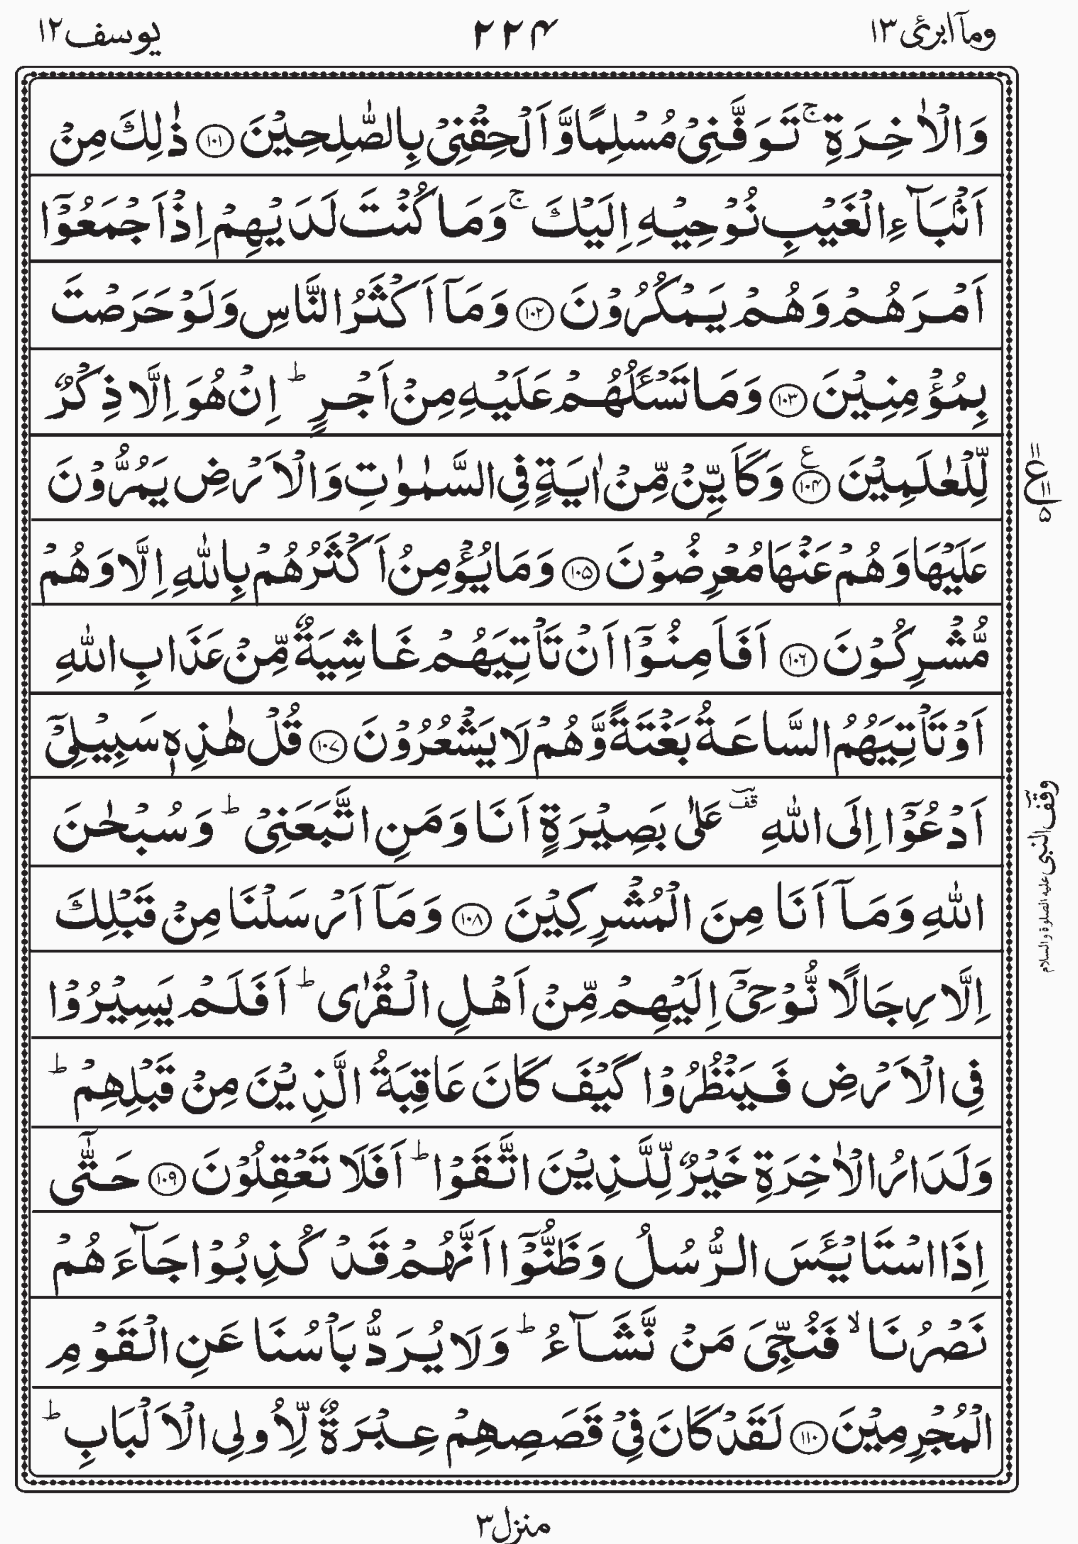 وماۤ ابرئ ١٣
٢٢٤
يوسف ١٢
وَالْاٰخِرَةِ ۚ تَوَفَّنِیْ مُسْلِمًا وَّاَلْحِقْنِیْ بِالصّٰلِحِیْنَ ﴿۱۰۱﴾ ذٰلِكَ مِنْ
اَنْۢبَآءِ الْغَیْبِ نُوْحِیْهِ اِلَیْكَ ۚ وَمَا كُنْتَ لَدَیْهِمْ اِذْ اَجْمَعُوْۤا
اَمْرَهُمْ وَهُمْ یَمْكُرُوْنَ ﴿۱۰۲﴾ وَمَاۤ اَكْثَرُ النَّاسِ وَلَوْ حَرَصْتَ
بِمُؤْمِنِیْنَ ﴿۱۰۳﴾ وَمَا تَسْـَٔلُهُمْ عَلَیْهِ مِنْ اَجْرٍ ؕ اِنْ هُوَ اِلَّا ذِكْرٌ
لِّلْعٰلَمِیْنَ ﴿۱۰۴﴾ ع وَكَاَیِّنْ مِّنْ اٰیَةٍ فِی السَّمٰوٰتِ وَالْاَرْضِ یَمُرُّوْنَ
۱۱ ع ۱۱ ۵
عَلَیْهَا وَهُمْ عَنْهَا مُعْرِضُوْنَ ﴿۱۰۵﴾ وَمَا یُؤْمِنُ اَكْثَرُهُمْ بِاللّٰهِ اِلَّا وَهُمْ
مُّشْرِكُوْنَ ﴿۱۰۶﴾ اَفَاَمِنُوْۤا اَنْ تَاْتِیَهُمْ غَاشِیَةٌ مِّنْ عَذَابِ اللّٰهِ
اَوْ تَاْتِیَهُمُ السَّاعَةُ بَغْتَةً وَّهُمْ لَا یَشْعُرُوْنَ ﴿۱۰۷﴾ قُلْ هٰذِهٖ سَبِیْلِیْۤ
اَدْعُوْۤا اِلَی اللّٰهِ ؔقف عَلٰی بَصِیْرَةٍ اَنَا وَمَنِ اتَّبَعَنِیْ ؕ وَسُبْحٰنَ
وقف النبی علیه الصلوة والسلام
اللّٰهِ وَمَاۤ اَنَا مِنَ الْمُشْرِكِیْنَ ﴿۱۰۸﴾ وَمَاۤ اَرْسَلْنَا مِنْ قَبْلِكَ
اِلَّا رِجَالًا نُّوْحِیْۤ اِلَیْهِمْ مِّنْ اَهْلِ الْقُرٰی ؕ اَفَلَمْ یَسِیْرُوْا
فِی الْاَرْضِ فَیَنْظُرُوْا كَیْفَ كَانَ عَاقِبَةُ الَّذِیْنَ مِنْ قَبْلِهِمْ ؕ
وَلَدَارُ الْاٰخِرَةِ خَیْرٌ لِّلَّذِیْنَ اتَّقَوْا ؕ اَفَلَا تَعْقِلُوْنَ ﴿۱۰۹﴾ حَتّٰۤی
اِذَا اسْتَایْـَٔسَ الرُّسُلُ وَظَنُّوْۤا اَنَّهُمْ قَدْ كُذِبُوْا جَآءَهُمْ
نَصْرُنَا ۙ فَنُجِّیَ مَنْ نَّشَآءُ ؕ وَلَا یُرَدُّ بَاْسُنَا عَنِ الْقَوْمِ
الْمُجْرِمِیْنَ ﴿۱۱۰﴾ لَقَدْ كَانَ فِیْ قَصَصِهِمْ عِبْرَةٌ لِّاُولِی الْاَلْبَابِ ؕ
منزل ٣